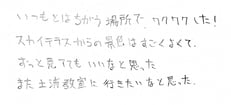 いつもとはちがう場所で、ワクワクした!
スカイテラスからの景色はすごくよくて、
ずっと見てても いいなと思った
また 土流教室に 行きたいなと思った。